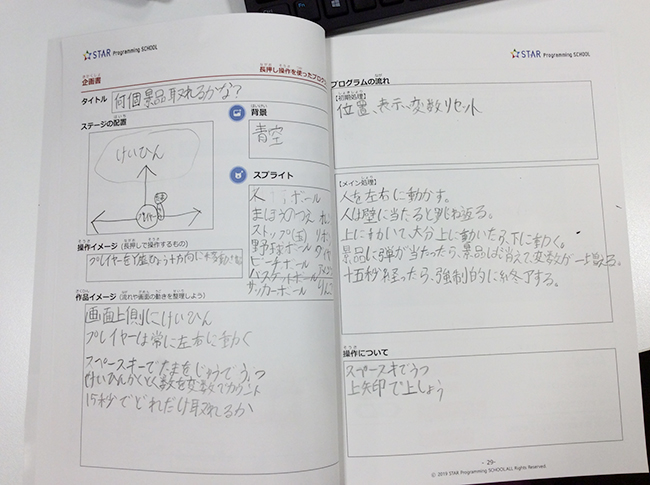 STAR Programming SCHOOL
企画書
長押し操作を使ったプログ
タイトル 何個景品取れるかな？
ステージの配置
けいひん
背景
青空
スプライト
ボール
まほうのつえ
ストップ(玉)
野球ボール
ビーチボール
バスケットボール
サッカーボール りんご
操作イメージ (長押しで操作するもの)
プレイヤーを
作品イメージ (流れや画面の動きを整理しよう)
画面上側にけいひん
プレイヤーは常に左右に動く
スペースキーでたまをじゅうでうつ
けいひんかくとく数を変数でカウント
15秒でどれだけ取れるか
STAR Programming SCHOOL
プログラムの流れ
【初期処理】
位置、表示、変数リセット
【メイン処理】
人を左右に動かす。
人は壁に当たると跳ね返る。
上にむかいて、大分上に動いたら、下に動く。
景品に弾が当たったら、景品は消えて変数が一つ増える。
十五秒経ったら、強制的に終了する。
操作について
スペースキーでうつ
上矢印で上しょう
-29-
© 2019 STAR Programming SCHOOL.ALL Rights Reserved.